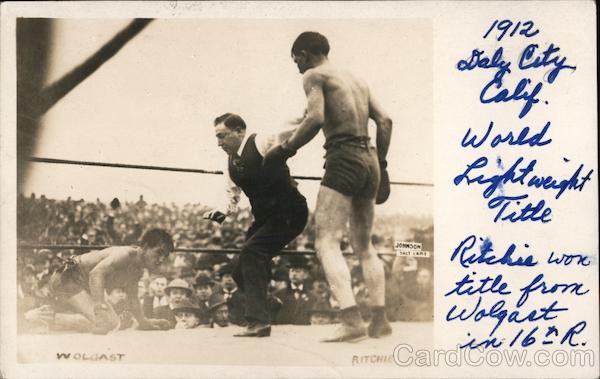 1912
Daly City
Calif.
World
Lightweight
Title
Ritchie won
title from
Wolgast
in 16th R.
JOHNSON
SALT LAKE
WOLGAST
RITCHIE
CardCow.com